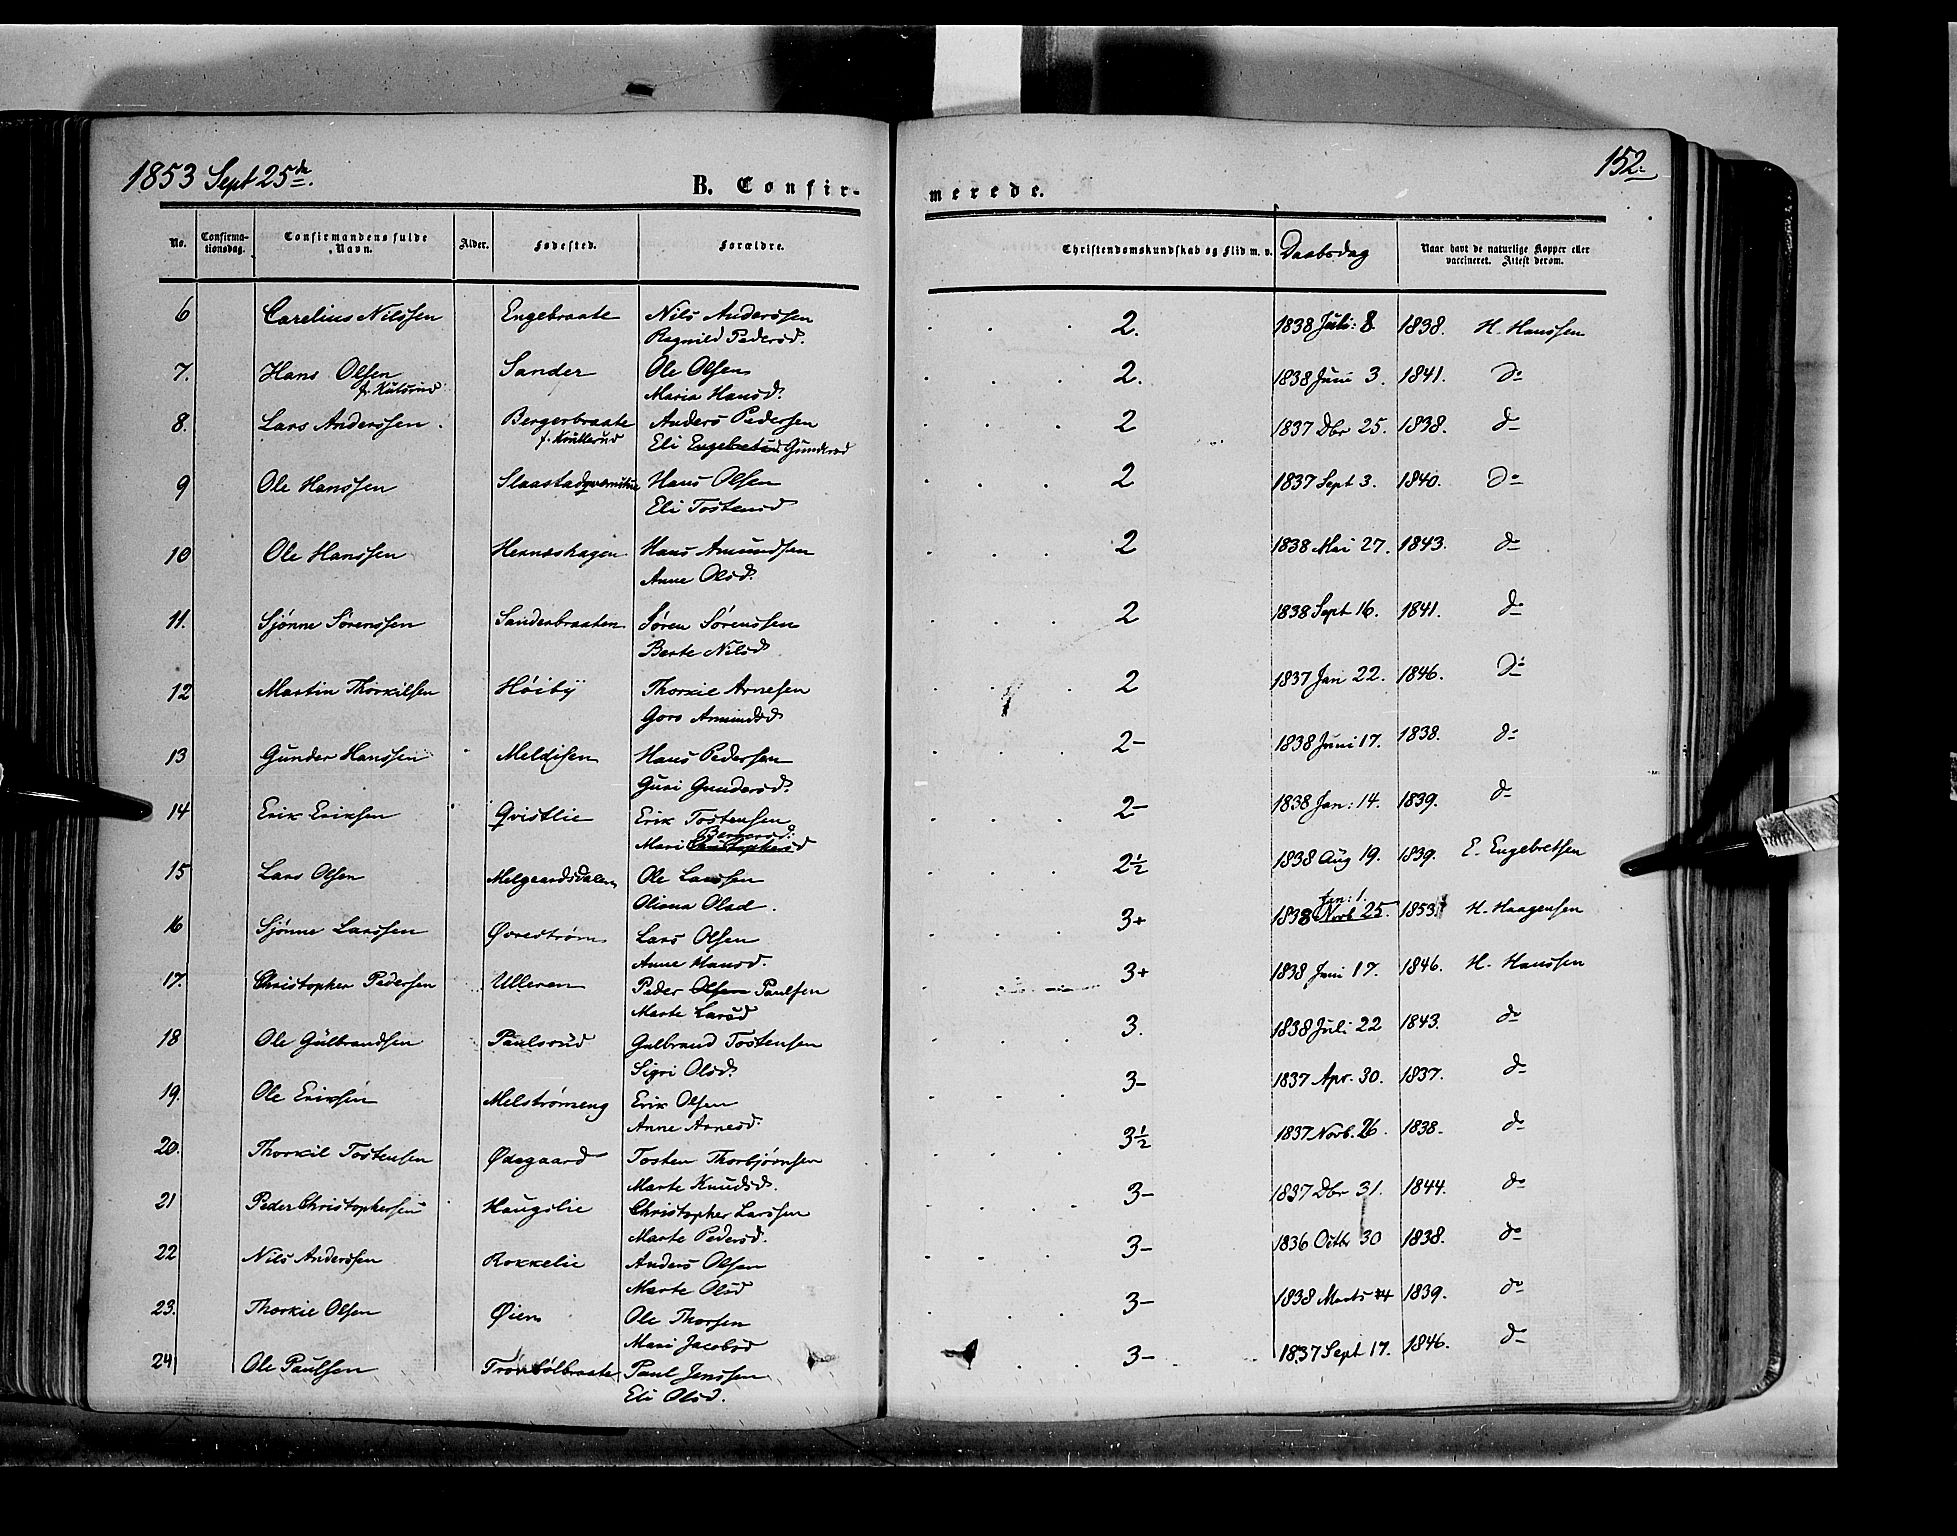 1853 Sept 25de.
152.
B. Confir-
merede.
No.
Confirma-
tionsdag.
Confirmandens fulde
Navn.
Alder.
Fødested.
Forældre.
Christendomskundskab og Flid m. v.
Daabsdag
Naar havt de naturlige Kopper eller
vaccineret. Attest derom.
6 Carelius Nilssen Engebraate Nils Anderssen 2. 1838 Juli: 8 1838. H. Hanssen
Ragnild Pedersd.
7. Hans Olsen Sander Ole Olsen 2. 1838 Juni 3. 1841. do
Maria Hansd.
8. Lars Anderssen Bergerbraate Anders Pedersen 2 1837 Dbr 25. 1838. do
Eli Engebretsd Gundersd
9 Ole Hanssen Hans Olsen 2 1837 Sept 3. 1840. do
Eli Tostensd
10 Ole Hanssen Hernæshagen Hans Amundsen 2 1838 Mai 27. 1843. do
Anne Olsd.
11. Sjønne Sørenssen Sanderbraaten Søren Sørenssen 2 1838 Sept 16. 1841. do
Berte Nilsd
12 Martin Thorkilsen Høiby Thorkil Arnesen 2 1837 Jan 22. 1846. do
Goro Amundsd
13 Gunder Hanssen Meldisen Hans Pedersen 2- 1838 Juni 17. 1838. do
Guri Gundersd.
14 Erik Eriksen Qvistlie Erik Tostensen 2- 1838 Jan: 14. 1839. do
Mari Christophersd
15 Lars Olsen Melgaardsdalen Ole Larssen 2½ 1838 Aug 19. 1839. E. Engebretsen
Oliana Olsd.
16 Sjønne Larssen Øvrestrøm Lars Olsen 3+ 1838 Novb 25. 1853 H. Haagensen
Anne Hansd.
17. Christopher Pedersen Ulleren Peder Olsen Paulsen 3+ 1838 Juni 17. 1846. H. Hanssen
Marte Larsd
18 Ole Gulbrandsen Paulsrud Gulbrand Tostensen 3. 1838 Juli 22 1843. do
Sigri Olsd.
19. Ole Eriksen Melstrømeng Erik Olsen 3- 1837 Apr. 30. 1837. do
Anne Arnesd.
20. Thorkil Tostensen Ødegaard Tosten Thorbjørnsen 3½ 1837 Novb. 26. 1838. do
Marte Knudsd.
21 Peder Christophersen Haugslie Christopher Larssen 3- 1837 Dbr 31. 1844. do
Marte Pedersd.
22 Nils Anderssen Rokkelie Anders Olsen 3- 1836 Octbr 30 1838. do
Marte Olsd
23. Thorkil Olsen Øien Ole Thorsen 3- 1838 Marts 1839. do
Mari Jacobsd
24 Ole Paulsen Paul Jenssen 3- 1837 Sept 17. 1846. do
Eli Olsd.